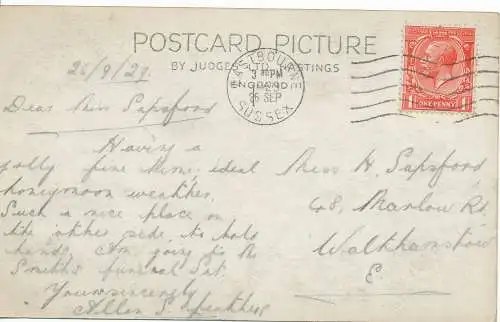 POSTCARD PICTURE
BY JUDGES LTD HASTINGS
EASTBOURNE
3 PM
26 SEP
SUSSEX
ONE PENNY
26/9/29
Dear Miss Sapsford
Having a
jolly fine time, ideal
honeymoon weather.
Such a nice place on
the other side to hold
hands. Am going to the
Smiths funeral Sat.
Yours sincerely
Allen S.
Miss H. Sapsford
48, Marlow Rd
Walthamstow
E.